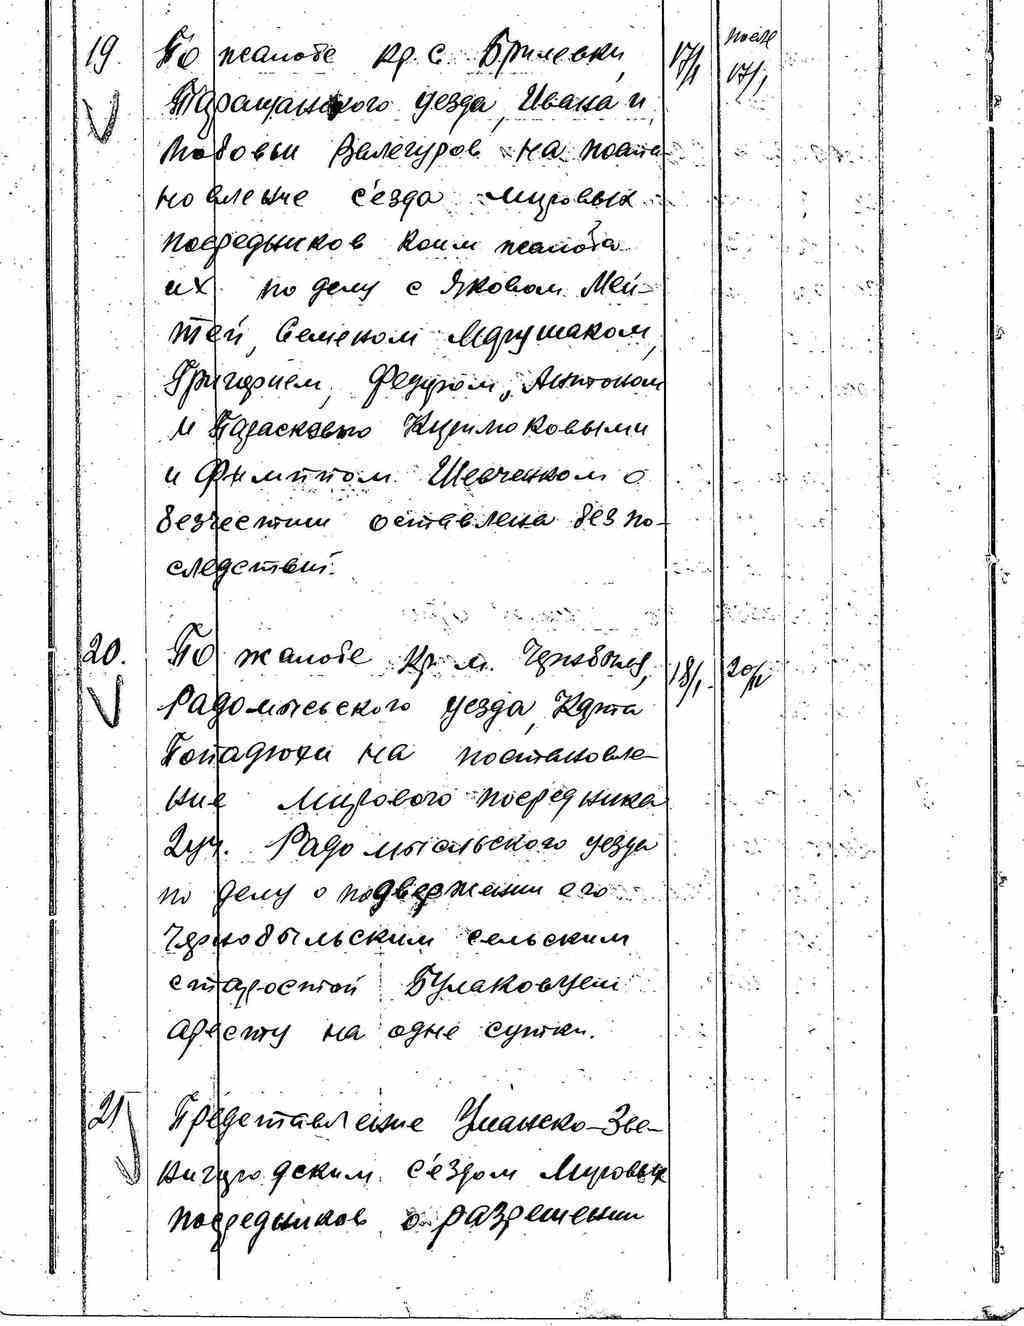 19. По жалобе кр. с. Брилевки, 17/I после 17/I
Таращанского уезда, Ивана и
Любовьи Валегуров на поста-
новление с'езда мировых
посредников коим жалоба
их по делу с Яковом Мей-
тей, Семеном Маргушаком,
Григорием, Федором, Антоном
и Парасковью Куримоковыми
и Филиппом Шевченком о
безчестии оставлена без по-
следствий.
20. По жалобе кр. м. Чернобыля, 18/I 20/II
Радомысьского уезда, Карпа
Попадюхи на постановле-
ние мирового посредника
2 уч. Радомысльского уезда
по делу о подвержении его
Чернобыльским сельским
старостой Булаковцем
аресту на одне сутки.
21 Представление Уманско-Зве-
нигородским с'ездом Мировых
посредников о разрешении